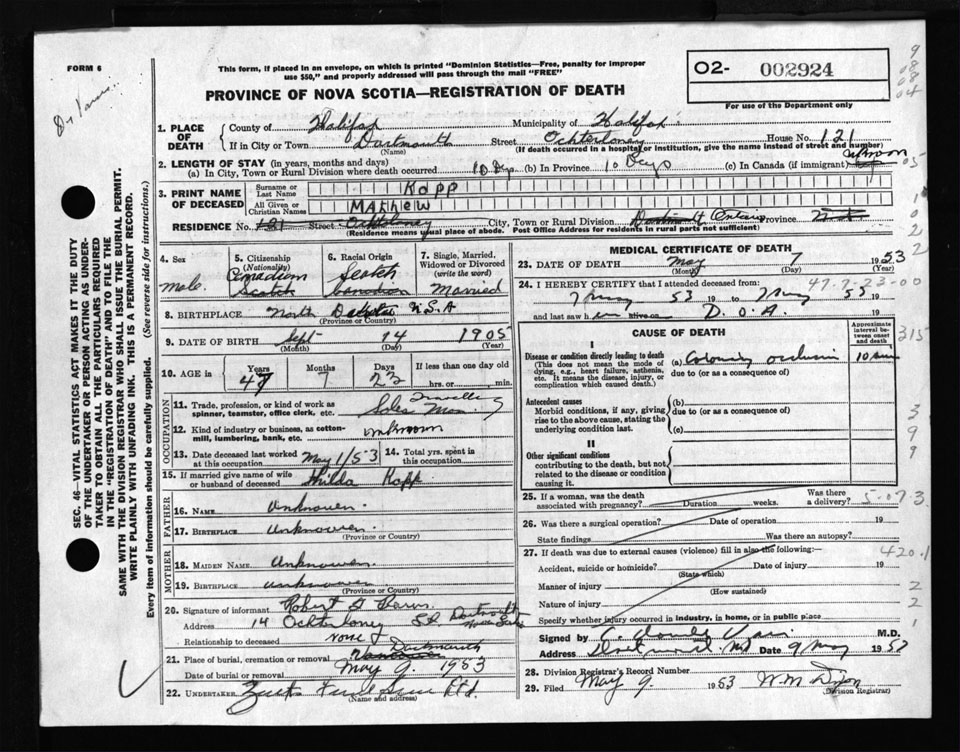 FORM 6
This form, if placed in an envelope, on which is printed "Dominion Statistics—Free, penalty for improper
use $50," and properly addressed will pass through the mail "FREE"
O2- 002924
For use of the Department only
PROVINCE OF NOVA SCOTIA—REGISTRATION OF DEATH
SEC. 46—VITAL STATISTICS ACT MAKES IT THE DUTY
OF THE UNDERTAKER OR PERSON ACTING AS UNDER-
TAKER TO OBTAIN ALL THE PARTICULARS REQUIRED
IN THE "REGISTRATION OF DEATH" AND TO FILE THE
SAME WITH THE DIVISION REGISTRAR WHO SHALL ISSUE THE BURIAL PERMIT.
WRITE PLAINLY WITH UNFADING INK. THIS IS A PERMANENT RECORD.
Every item of information should be carefully supplied. (See reverse side for instructions.)
1. PLACE OF DEATH
County of Halifax Municipality of Halifax
If in City or Town Dartmouth Street Ochterloney House No. 121
(Name) (If death occurred in a hospital or institution, give the name instead of street and number)
2. LENGTH OF STAY (in years, months and days)
(a) In City, Town or Rural Division where death occurred 10 Dys (b) In Province 10 Days (c) In Canada (if immigrant)
3. PRINT NAME OF DECEASED
Surname or Last Name Kopp
All Given or Christian Names MATHEW
RESIDENCE No. 121 Street Ochterloney City, Town or Rural Division Ontario Province
(Residence means usual place of abode. Post Office Address for residents in rural parts not sufficient)
4. Sex
Male
5. Citizenship
(Nationality)
Canadian
Scotch
6. Racial Origin
Scotch
Canadian
7. Single, Married, Widowed or Divorced
(write the word)
Married
8. BIRTHPLACE North Dakota U.S.A
(Province or Country)
9. DATE OF BIRTH Sept 14 1905
(Month) (Day) (Year)
10. AGE in
Years Months Days If less than one day old
47 7 22 hrs. or min.
OCCUPATION
11. Trade, profession, or kind of work as
spinner, teamster, office clerk, etc. Travelling Sales Man
12. Kind of industry or business, as cotton-
mill, lumbering, bank, etc. unknown
13. Date deceased last worked
at this occupation May 1/53
14. Total yrs. spent in
this occupation
15. If married give name of wife
or husband of deceased Hilda Kopp
FATHER
16. NAME Unknown
17. BIRTHPLACE Unknown
(Province or Country)
MOTHER
18. MAIDEN NAME Unknown
19. BIRTHPLACE unknown
(Province or Country)
20. Signature of informant Robert
Address 14 Ochterloney St. Dartmouth
Relationship to deceased none
21. Place of burial, cremation or removal Vancouver Dartmouth
Date of burial or removal May 9. 1953
22. UNDERTAKER Ltd.
(Name and address)
MEDICAL CERTIFICATE OF DEATH
23. DATE OF DEATH May 7 1953
(Month) (Day) (Year)
24. I HEREBY CERTIFY that I attended deceased from:
7 May 53 19 to 7 May 53 19
and last saw h im alive on D.O.A. 19
CAUSE OF DEATH
Approximate interval between onset and death
I
Disease or condition directly leading to death
(This does not mean the mode of
dying, e.g., heart failure, asthenia,
etc. It means the disease, injury, or
complication which caused death.)
(a) Coronary occlusion 10 min
due to (or as a consequence of)
Antecedent causes
Morbid conditions, if any, giving
rise to the above cause, stating the
underlying condition last.
(b)
due to (or as a consequence of)
(c)
II
Other significant conditions
contributing to the death, but not
related to the disease or condition
causing it.
25. If a woman, was the death
associated with pregnancy? Duration weeks. Was there a delivery?
26. Was there a surgical operation? Date of operation 19
State findings Was there an autopsy?
27. If death was due to external causes (violence) fill in also the following:
Accident, suicide or homicide? Date of injury 19
(State which)
Manner of injury
(How sustained)
Nature of injury
Specify whether injury occurred in industry, in home, or in public place
Signed by M.D.
Address Date 9 May 1953
28. Division Registrar's Record Number
29. Filed May 9 1953 W. M. Dixon
(Division Registrar)
47-7-23-00
315
3
9
9
5-073
420.1
2
2
1